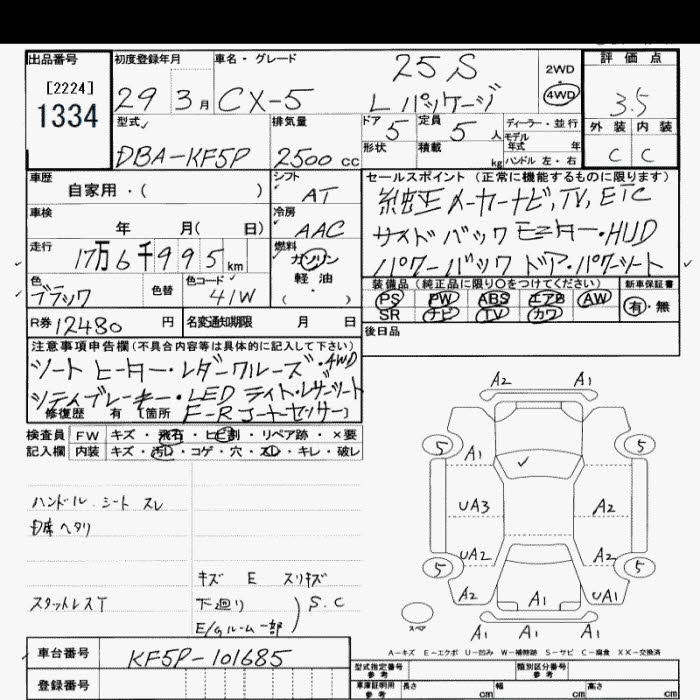 出品番号 初度登録年月 車名・グレード 評価点
[2224]
1334
29 3月 CX-5 25S 2WD
Lパッケージ 4WD 3.5
型式 排気量 ドア 定員 ディーラー・並行 外装 内装
5 5人 モデル年式 年
DBA-KF5P 2500cc 形状 積載 kg ハンドル 左・右 C C
車歴 シフト セールスポイント(正常に機能するものに限ります)
自家用・( ) AT 純正メーカーナビ,TV,ETC
車検 冷房
年 月( 日) AAC サイドバックモニター・HUD
走行 燃料
17万6千995km ガソリン パワーバックドア・パワーシート
色 色替 色コード 軽油 装備品(純正品に限り〇をつけてください) 新車保証書
ブラック 41W ( ) PS PW ABS エアB AW 有・無
SR ナビ TV カワ
R券 12480円 名変通知期限 月 日 後日品
注意事項申告欄(不具合内容等は具体的に記入して下さい)
シートヒーター・レダークルーズ・4WD
シティブレーキ・LEDライト・レザーシート
修復歴 有 [箇所 F-Rコーナーセンサー]
検査員 FW キズ・飛石・ヒビ割・リペア跡・×要
記入欄 内装 キズ・汚れ・コゲ・穴・スレ・キレ・破レ
A2 A1
5 A1 5
UA3 A2
UA2 A2
5 5
A2 A1 UA1
A1 A1 A1
スペア
ハンドル.シート スレ
スタットレスT
キズ E スリキズ
下廻り
E/Gルーム一部 ) S.C
A-キズ E-エクボ U-凹み W-補修跡 S-サビ C-腐食 XX-交換済
車台番号 KF5P-101685
型式指定番号 参考 類別区分番号 参考
登録番号
車庫証明用 参考 長さ cm 幅 cm 高さ cm